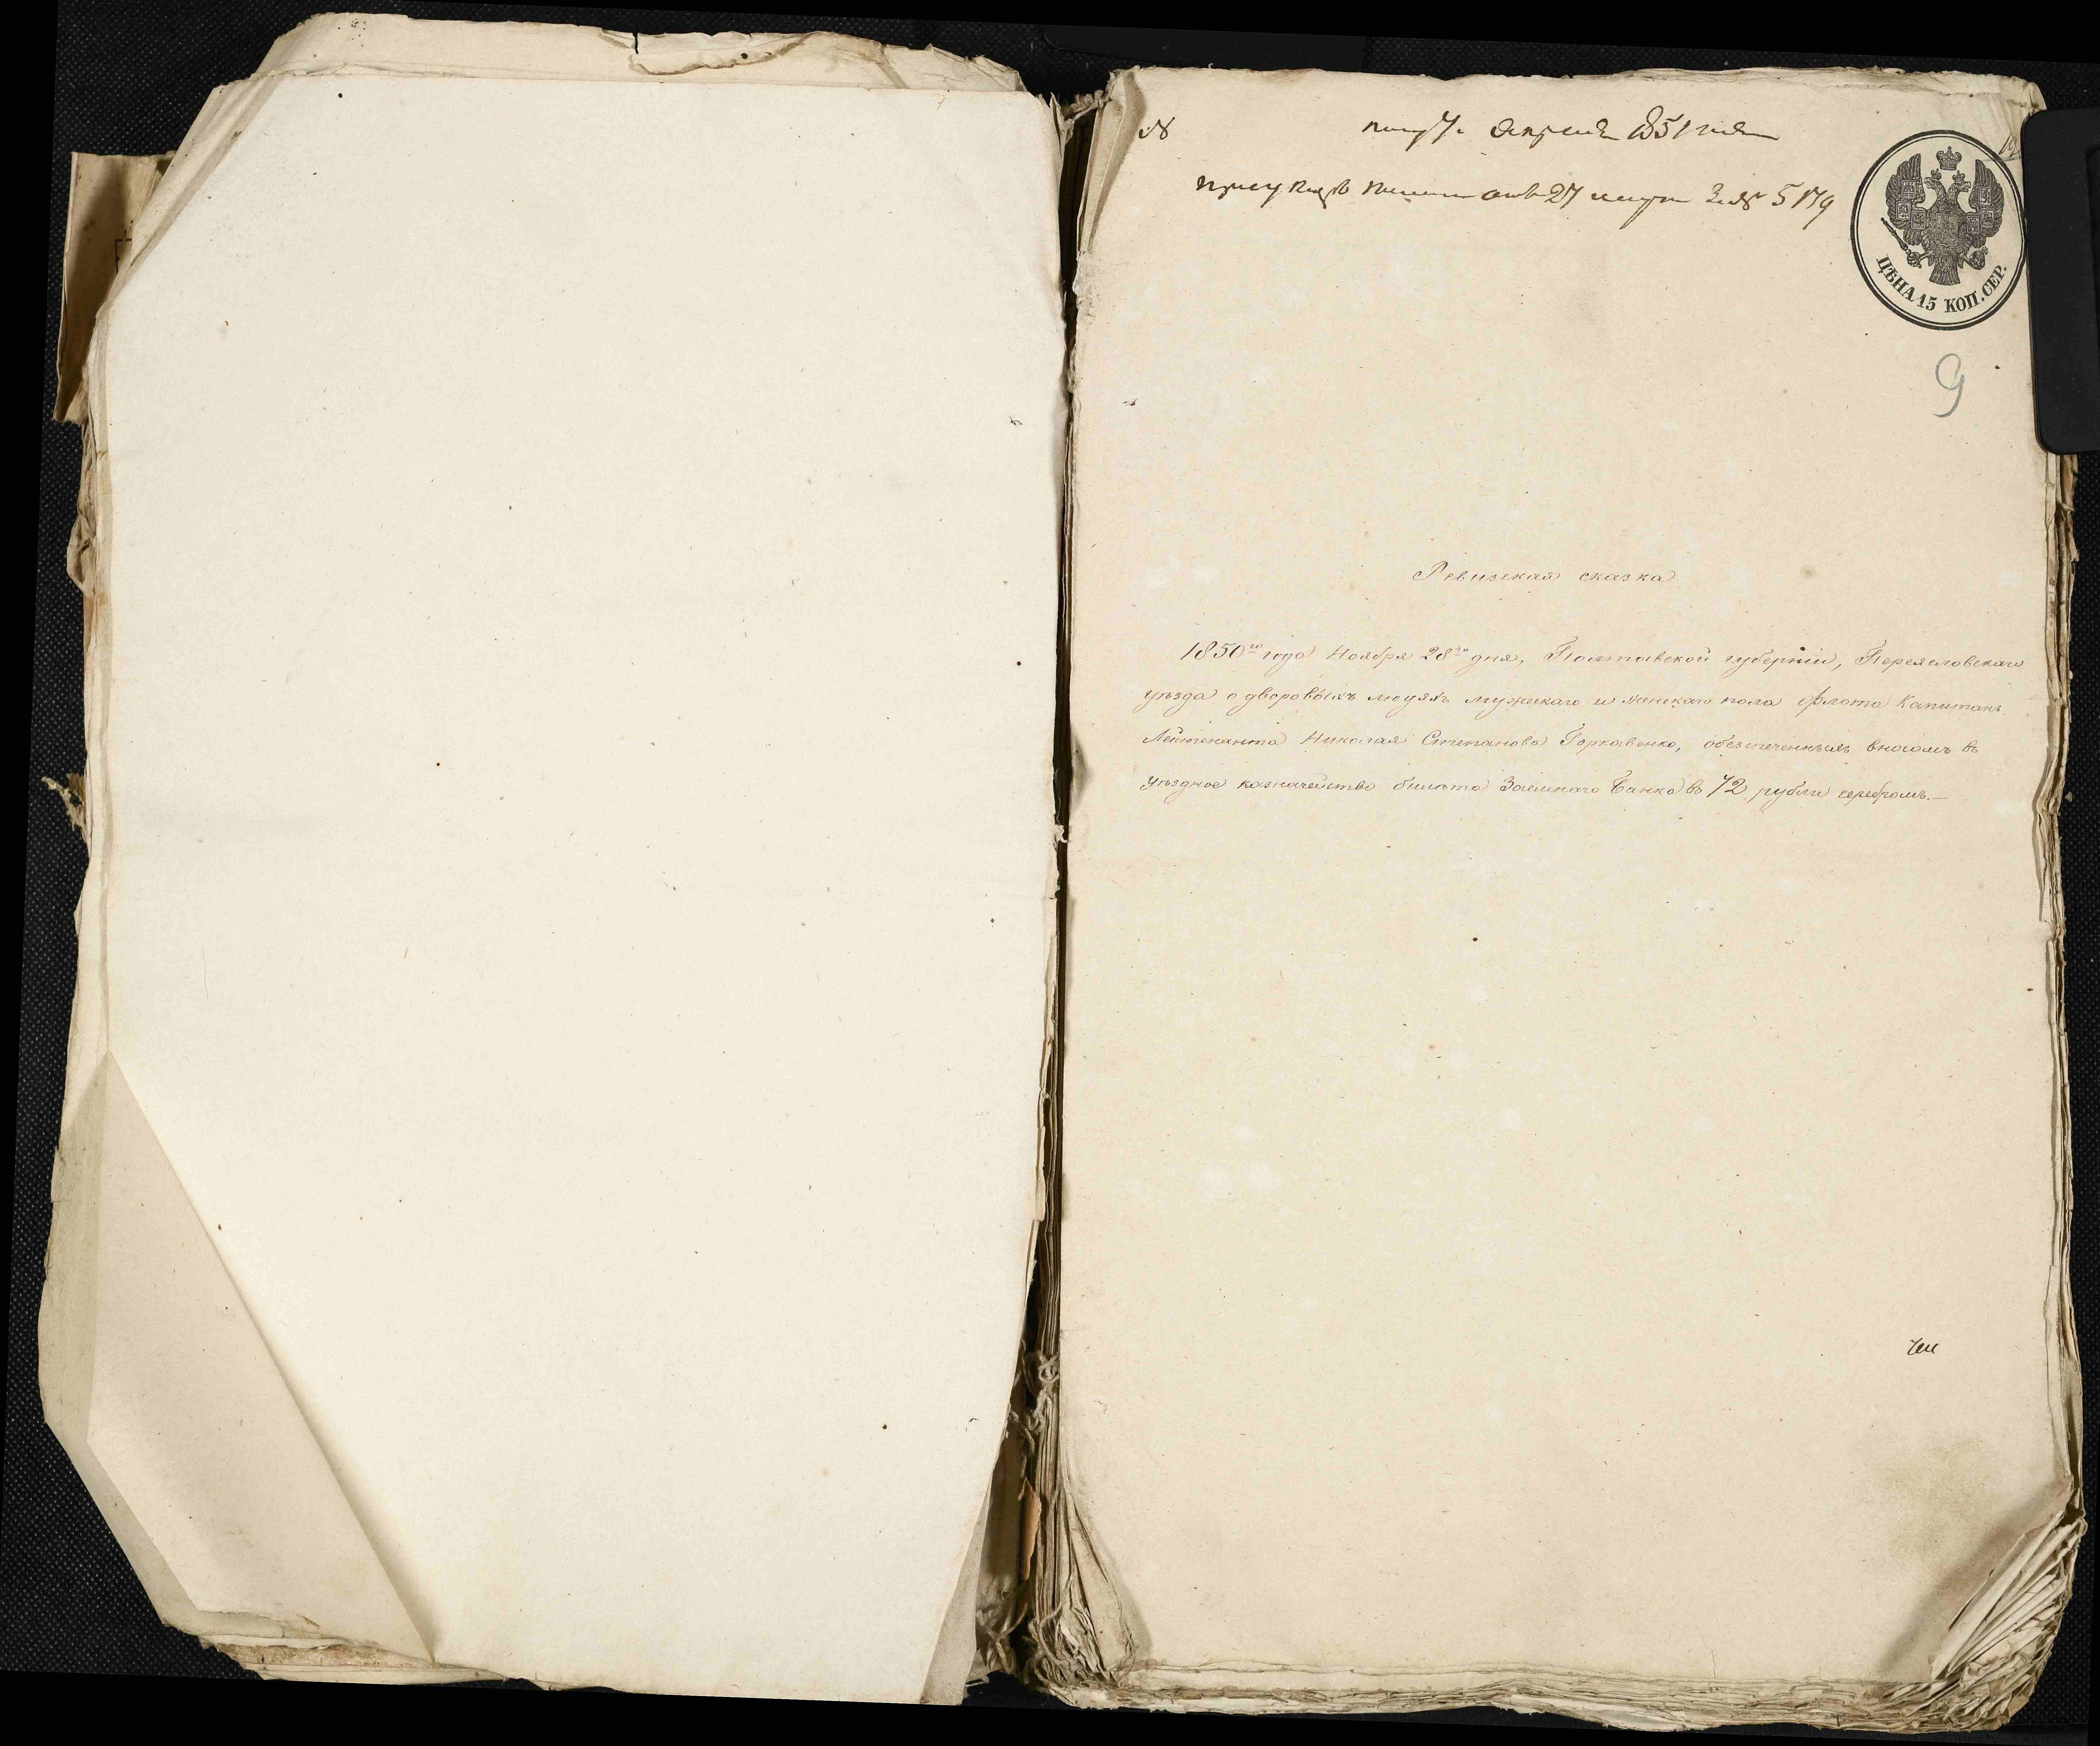 №
апреля 1851 года
27 марта За № 5179
ЦѢНА 15 КОП. СЕР.
9
Ревизская сказка
1850го года Ноября 28го дня, Полтавской губерніи, Переяславскаго
уѣзда о дворовыхъ людяхъ мужескаго и женскаго пола Флота Капитанъ
Лейтенанта Николая Степанова Горкавенко, обезпеченныхъ вносомъ въ
уѣздное казначейство билета Заемнаго Банка въ 72 рубли серебромъ.—